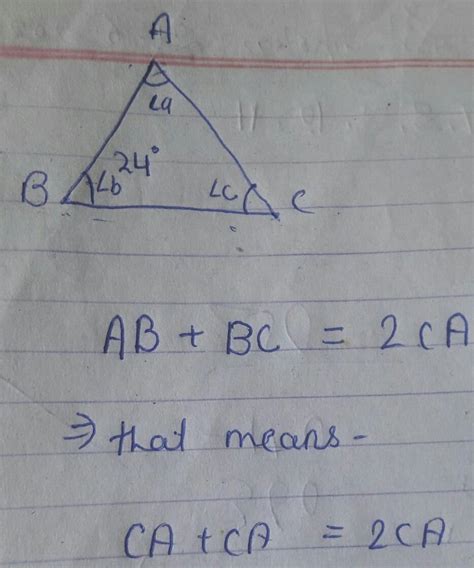 A
∠a
24°
B ∠b ∠c C
AB + BC = 2CA
⇒ that means -
CA + CA = 2CA